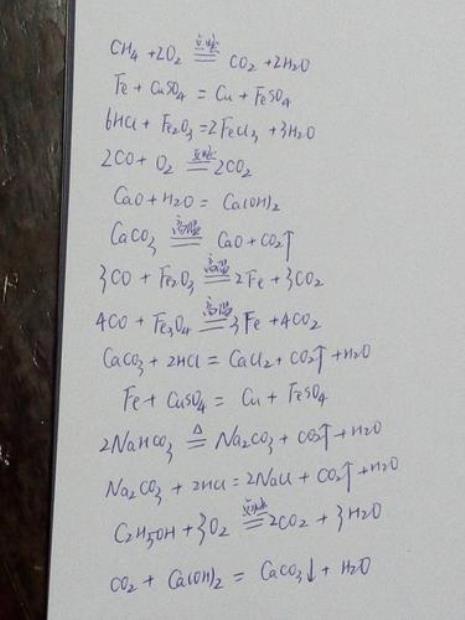 CH₄ + 2O₂ 点燃 == CO₂ + 2H₂O
Fe + CuSO₄ = Cu + FeSO₄
6HCl + Fe₂O₃ = 2FeCl₃ + 3H₂O
2CO + O₂ 点燃 == 2CO₂
CaO + H₂O = Ca(OH)₂
CaCO₃ 高温 == CaO + CO₂↑
3CO + Fe₂O₃ 高温 == 2Fe + 3CO₂
4CO + Fe₃O₄ 高温 == 3Fe + 4CO₂
CaCO₃ + 2HCl = CaCl₂ + CO₂↑ + H₂O
Fe + CuSO₄ = Cu + FeSO₄
2NaHCO₃ △ == Na₂CO₃ + CO₂↑ + H₂O
Na₂CO₃ + 2HCl = 2NaCl + CO₂↑ + H₂O
C₂H₅OH + 3O₂ 点燃 == 2CO₂ + 3H₂O
CO₂ + Ca(OH)₂ = CaCO₃↓ + H₂O